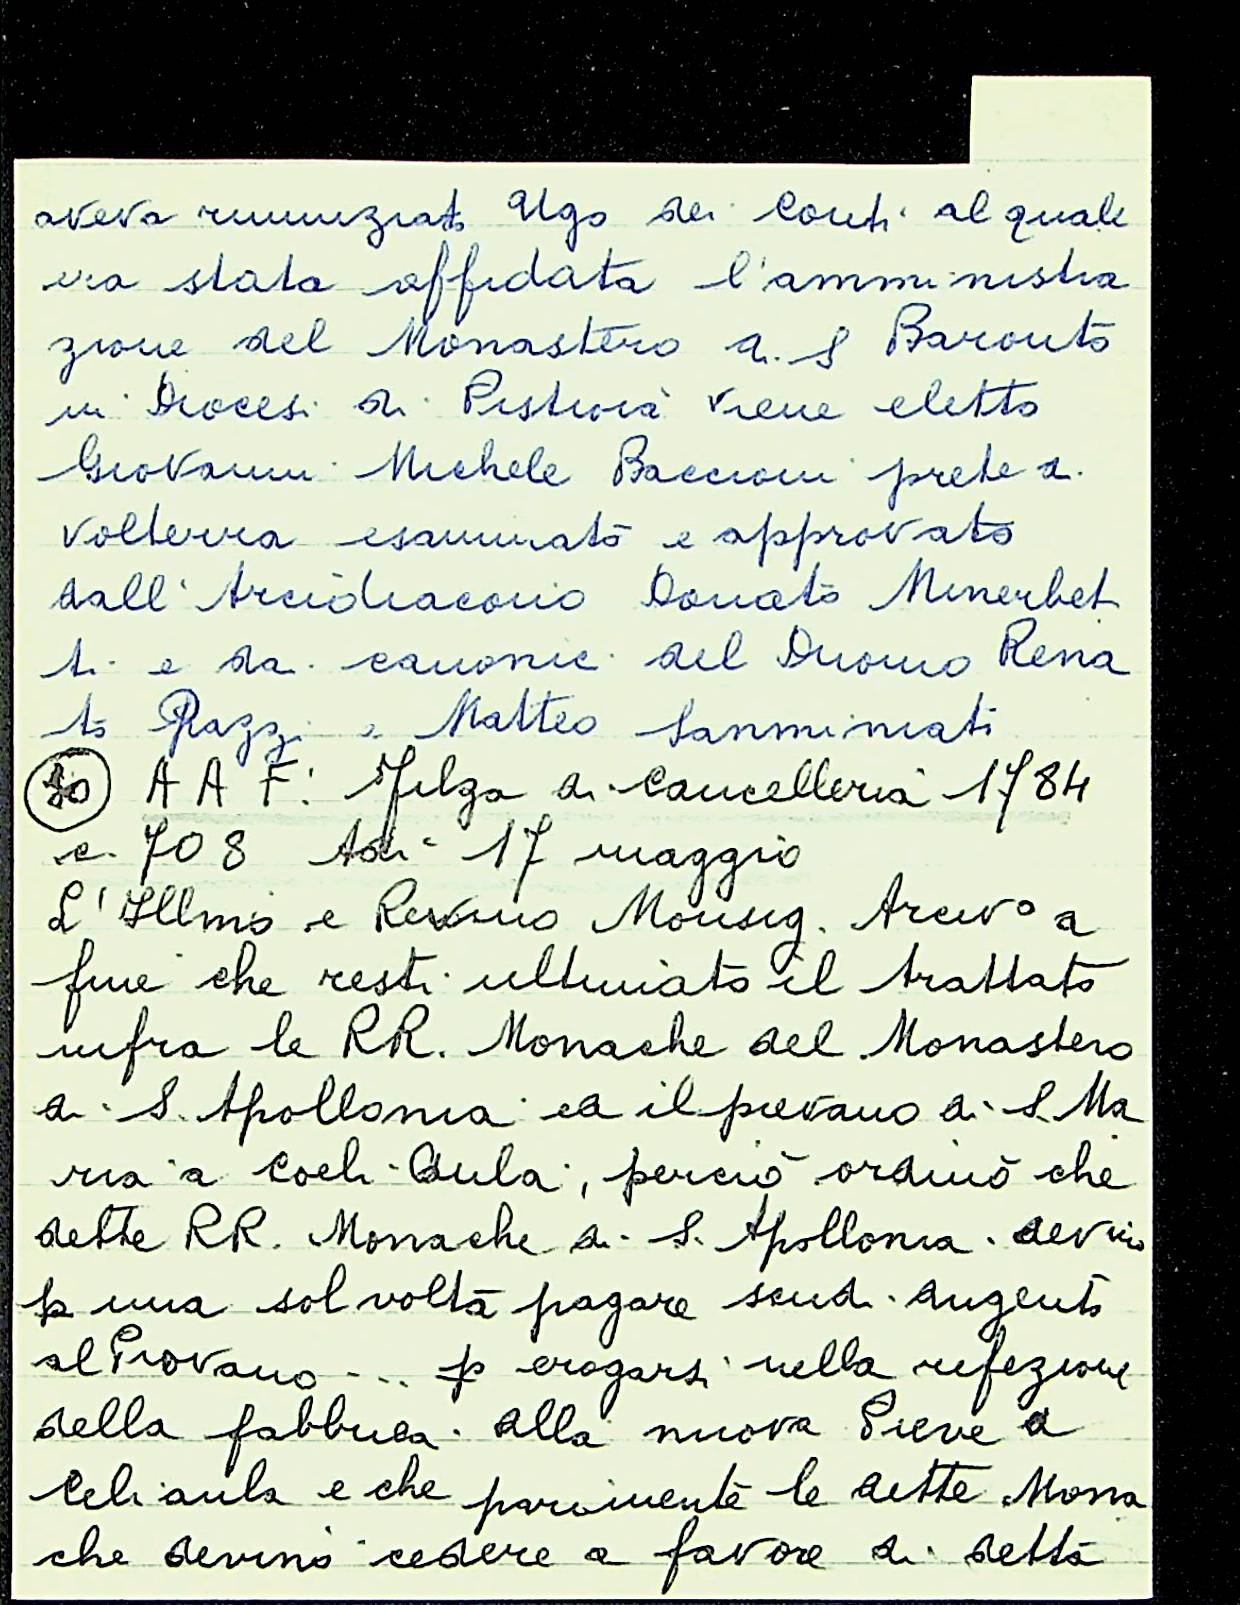 aveva rinunziato Ugo dei Conti al quale
era stata affidata l'amministra
zione del Monastero di S Baronto
in Diocesi di Pistoia viene eletto
Giovanni Michele Baccioni prete di
Volterra esaminato e approvato
dall'Arcidiacono Donato Minerbet
ti e da canonic del Duomo Rena
to Pazzi e Matteo Sanminiati
A A F: Filza di Cancelleria 1784
c. 708 Adi 17 maggio
L'Illmo e Revmo Monsig. Arcivo a
fine che resti ultimato il trattato
infra le RR. Monache del Monastero
di S. Apollonia ed il pievano di S. Ma
ria a Coeli Aula, perciò ordinò che
dette RR. Monache di S. Apollonia devino
p una sol volta pagare scudi dugento
al Piovano ... p erogarsi nella refezione
della fabbrica alla nuova Pieve a
Celiaula e che parimente le dette Mona
che devino cedere a favore di detta